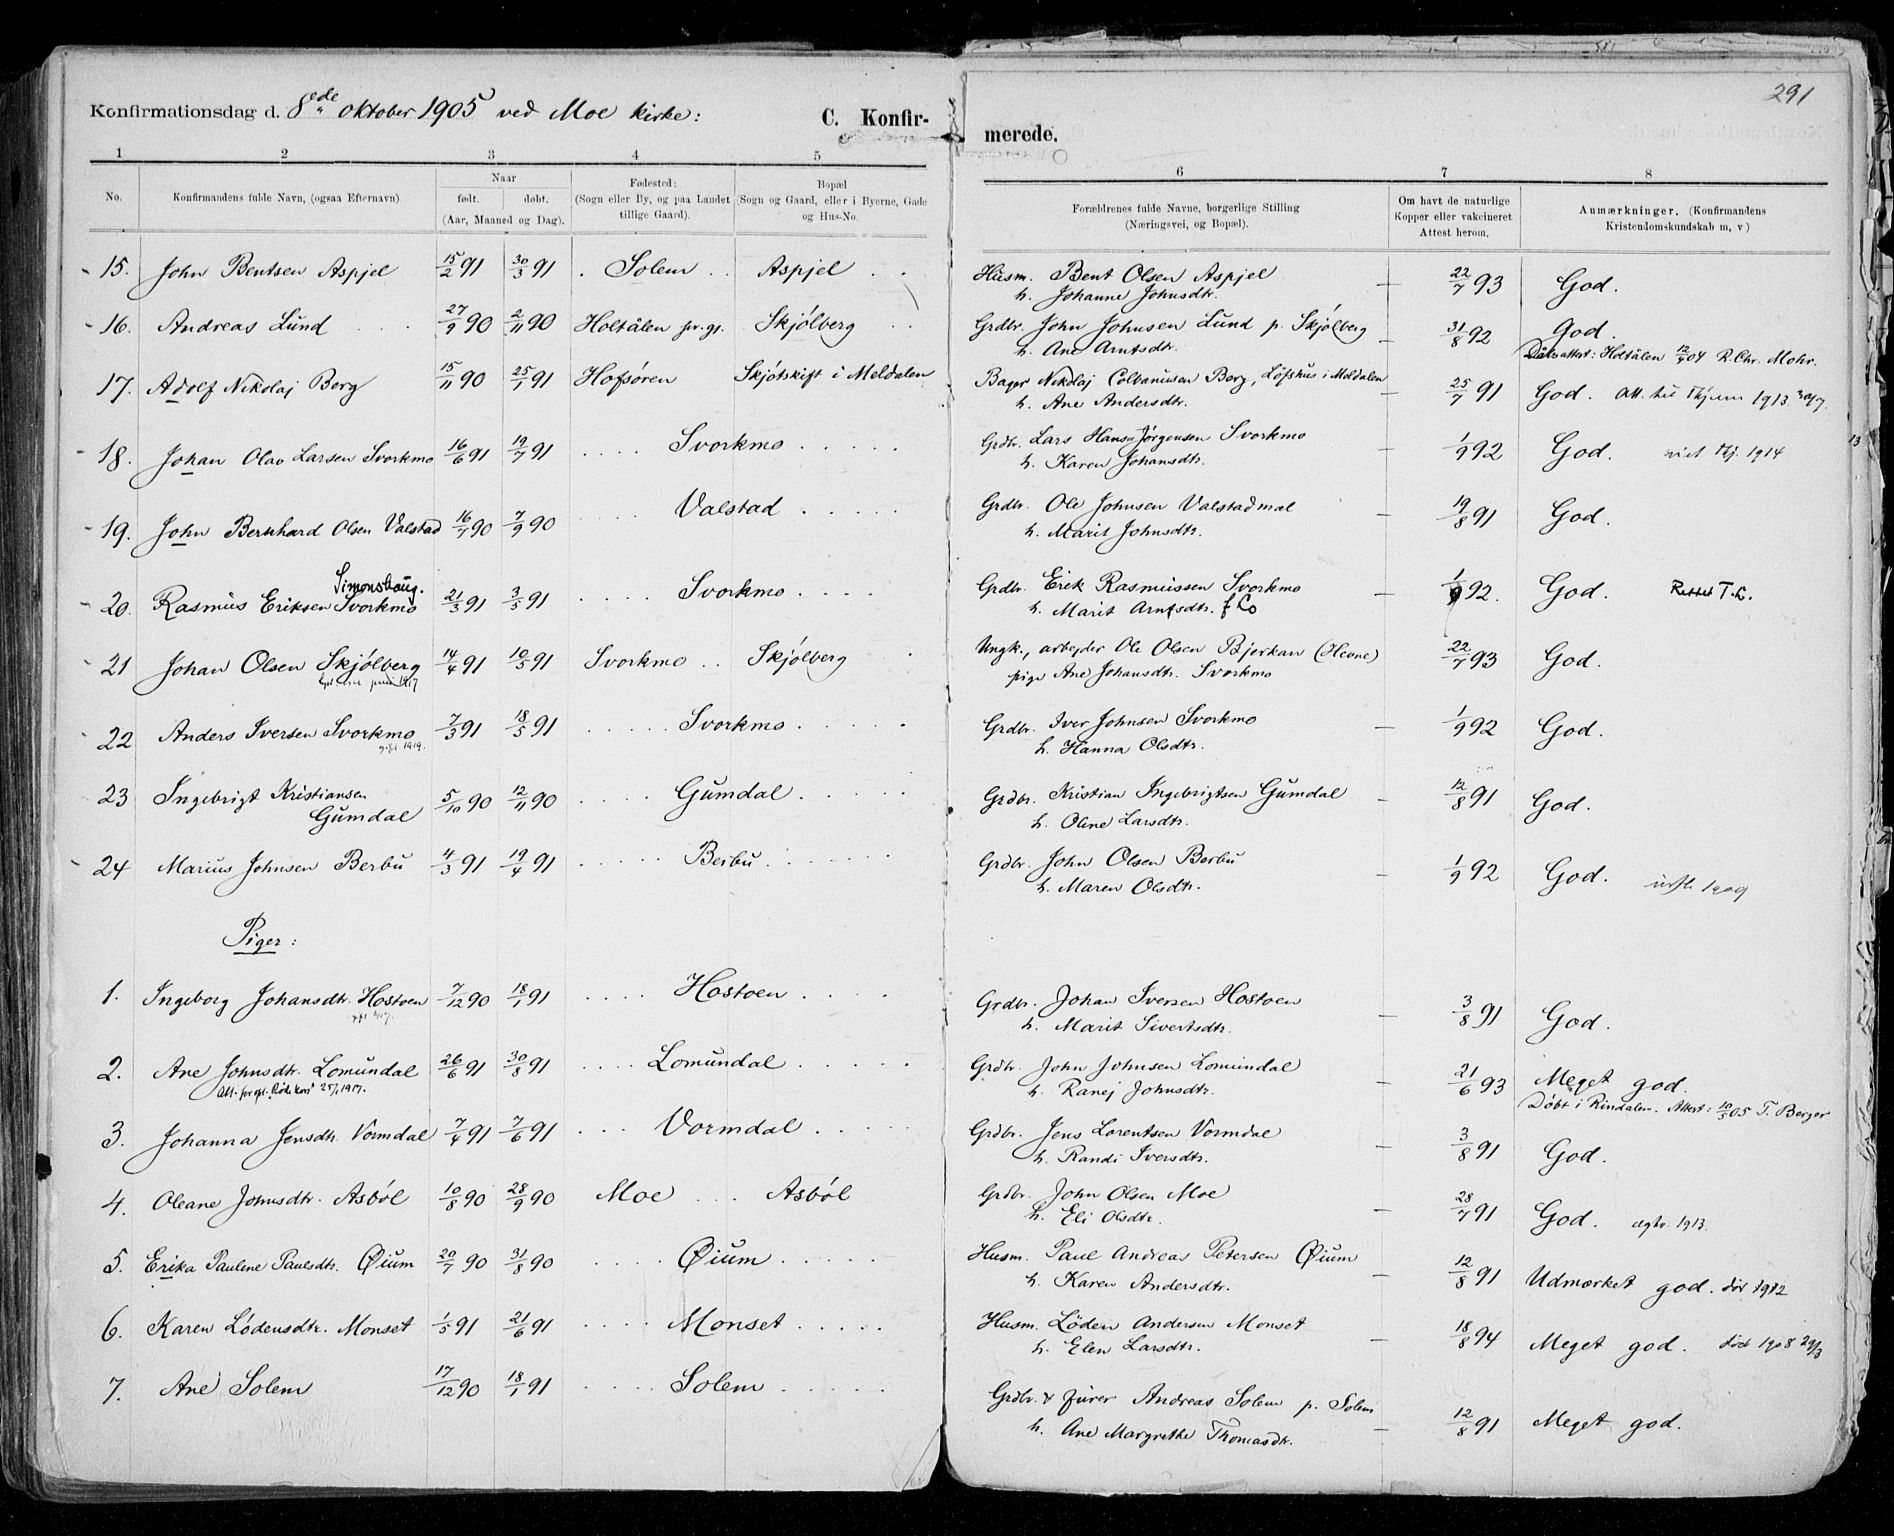 291
Konfirmationsdag d. 8de oktober 1905 ved Moe kirke: C. Konfir-merede.
1 2 3 4 5 6 7 8
No. Konfirmandens fulde Navn, (ogsaa Efternavn) Naar født. døbt. (Aar, Maaned og Dag). Fødested: (Sogn eller By, og paa Landet tillige Gaard). Bopæl (Sogn og Gaard, eller i Byerne, Gade og Hus-No. Forældrenes fulde Navne, borgerlige Stilling (Næringsvei, og Bopæl). Om havt de naturlige Kopper eller vakcineret Attest herom. Anmærkninger. (Konfirmandens Kristendomskundskab m, v)
15. John Bentsen Aspjel 15/2 91 30/3 91 Solem Aspjel Husm. Bent Olsen Aspjel — 22/7 93 God.
h. Johanne Johnsdtr.
16. Andreas Lund 27/9 90 2/11 90 Holtålen pr.gj. Skjølberg Grdbr. John Johnsen Lund p. Skjølberg — 31/8 92 God.
h. Ane Arntsdtr. Dåbsattest: Holtålen 12/9 04 R. Chr. Mohr.
17. Adolf Nikolaj Berg 15/11 90 25/1 91 Hofsøren Skjøtskift i Meldalen Bager Nikolaj Colbanusen Berg, Løfshus i Meldalen 25/7 91 God. Att. til 1913
h. Ane Andersdtr.
18. Johan Olav Larsen Svorkmo 16/6 91 19/7 91 Svorkmo Grdbr. Lars Hans Jørgensen Svorkmo — 1/9 92 God. 1914
h. Karen Johansdtr.
19. John Bernhard Olsen Valstad 16/7 90 7/9 90 Valstad Grdbr. Ole Johnsen Valstadmal — 19/8 91 God.
h. Marit Johnsdtr.
Simonshaug.
20. Rasmus Eriksen Svorkmo 21/3 91 3/5 91 Svorkmo Grdbr. Erik Rasmussen Svorkmo — 1/9 92. God. Rettet T.L.
h. Marit Arntsdtr.
21 Johan Olsen Skjølberg 14/4 91 10/5 91 Svorkmo Skjølberg Ungk., arbejder Ole Olsen Bjerkan (Oleane) 22/7 93 God.
juni 1917 pige Ane Johansdtr. Svorkmo
22 Anders Iversen Svorkmo 7/3 91 18/5 91 Svorkmo Grdbr. Iver Johnsen Svorkmo — 1/9 92 God.
1919. h. Hanna Olsdtr.
23 Ingebrigt Kristiansen Gumdal 5/10 90 12/11 90 Gumdal Grdbr. Kristian Ingebrigtsen Gumdal — 12/8 91 God.
h. Oline Larsdtr.
24 Marius Johnsen Berbu 4/3 91 19/4 91 Berbu Grdbr. John Olsen Berbu — 1/9 92 God. 1909
h. Maren Olsdtr.
Piger:
1. Ingeborg Johansdtr. Hostoen 7/12 90 18/1 91 Hostoen Grdbr. Johan Iversen Hostoen — 3/8 91 God.
h. Marit Sivertsdtr.
2. Ane Johnsdtr. Lomundal 26/6 91 30/8 91 Lomundal Grdbr. John Johnsen Lomundal — 21/6 93 Meget god.
h. Ranej Johnsdtr. Døbt i Rindalen. Attest: 10/5 05 T. Berger
3. Johanna Jensdtr. Vormdal 7/4 91 7/6 91 Vormdal Grdbr. Jens Lorentsen Vormdal — 3/8 91 God.
h. Randi Iversdtr.
4. Oleane Johnsdtr. Asbøl 10/8 90 28/9 90 Moe Asbøl Grdbr. John Olsen Moe — 28/7 91 God. 1913.
h. Eli Olsdtr.
5. Erika Pauline Paulsdtr. Øium 20/7 90 31/8 90 Øium Husm. Paul Andreas Petersen Øium — 12/8 91 Udmærket god. 1912
h. Karen Andersdtr.
6. Karen Lødensdtr. Monset 1/5 91 21/6 91 Monset Husm. Løden Andersen Monset — 18/8 94 Meget god. død 1908 29/3
h. Elen Larsdtr.
7. Ane Solem 17/12 90 18/1 91 Solem Grdbr. & furer Andreas Solem p. Solem — 12/8 91 Meget god.
h. Ane Margrethe Thomasdtr.